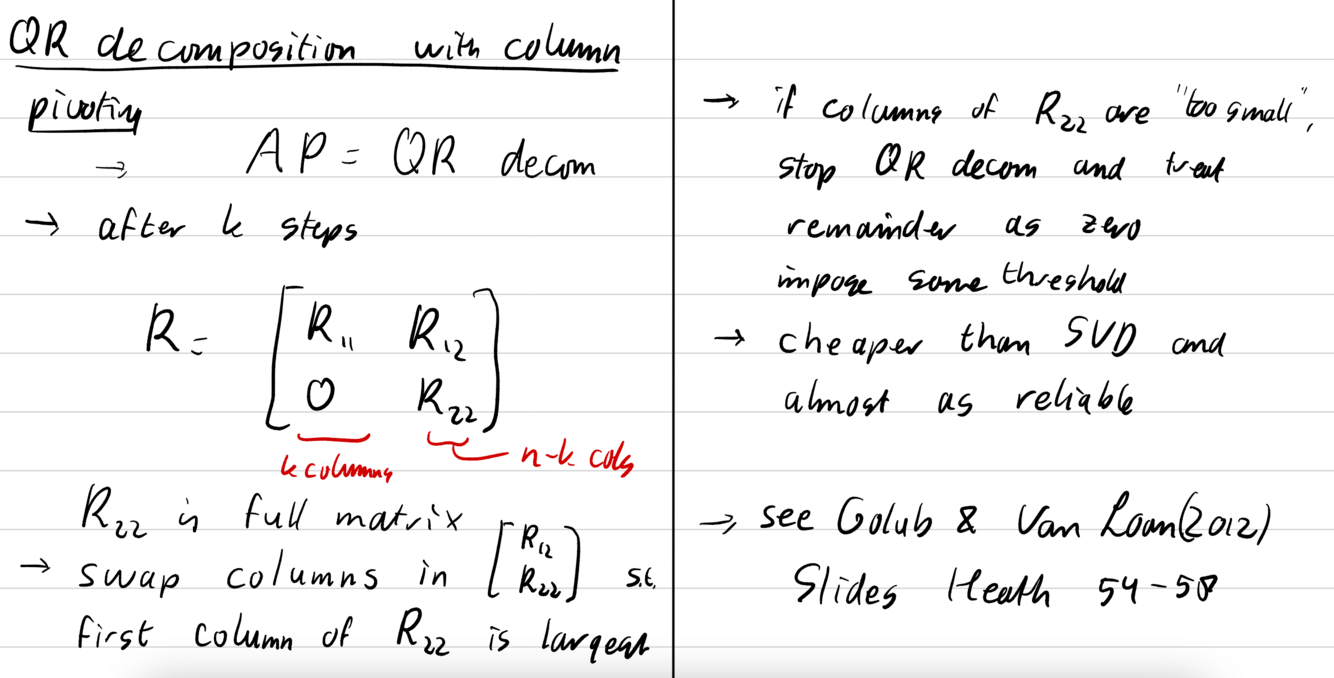 QR decomposition with column
pivoting
→ AP = QR decom
→ after k steps
R = [ R₁₁ R₁₂
0 R₂₂ ]
k columns
n-k cols
R₂₂ is full matrix
→ swap columns in [ R₁₂ R₂₂ ] s.t.
first column of R₂₂ is largest
→ if columns of R₂₂ are "too small",
stop QR decom and treat
remainder as zero
impose some threshold
→ cheaper than SVD and
almost as reliable
→ see Golub & Van Loan (2012)
Slides Heath 54-58